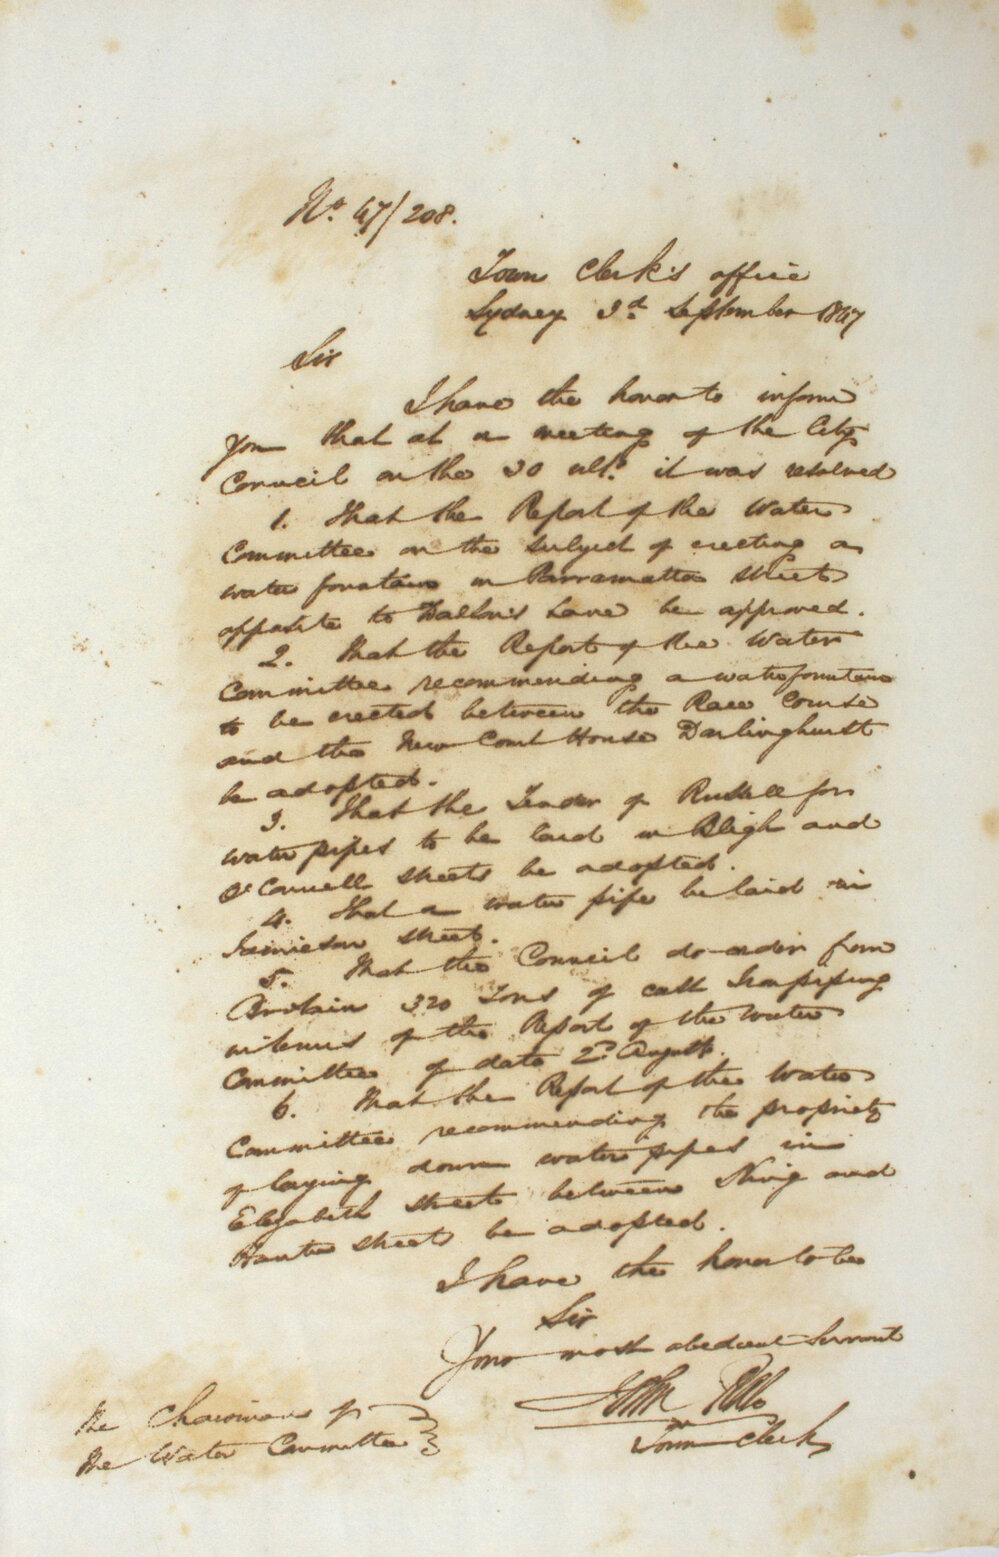 No. 47/208.
Town Clerk's office
Sydney 3d. September 1847
Sir
I have the honor to inform
you that at a meeting of the City
Council on the 30 ulto. it was resolved
1. That the Report of the Water
Committee on the subject of erecting a
water fountain in Parramatta Street
opposite to Dallon's Lane be approved.
2. That the Report of the Water
Committee recommending a waterfountain
to be erected between the Race Course
and the New Court House Darlinghurst
be adopted.
3. That the Tender of Russell for
water pipes to be laid in Bligh and
O'Connell streets be adopted.
4. That a water pipe be laid in
Jamieson street.
5. That the Council do order from
Britain 320 Tons of cast Iron piping
in terms of the Report of the Water
Committee of date 2d August.
6. That the Report of the Water
Committee recommending the propriety
of laying down water pipes in
Elizabeth street between King and
Hunter streets be adopted.
I have the honor to be
Sir
Your most obedient Servant
John Rae
Town Clerk
The Chairman of
the Water Committee